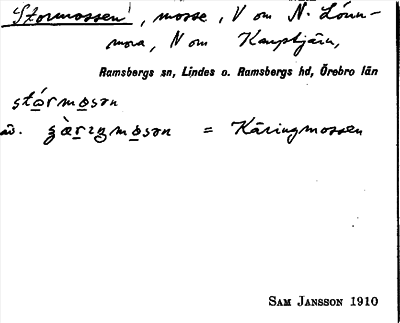 'Stormossen', mosse, V om N. Lönn-
mora, N om Kamptjärn,
Ramsbergs sn, Lindes o. Ramsbergs hd, Örebro län
stórmosən
av. = Käringmossen
SAM JANSSON 1910